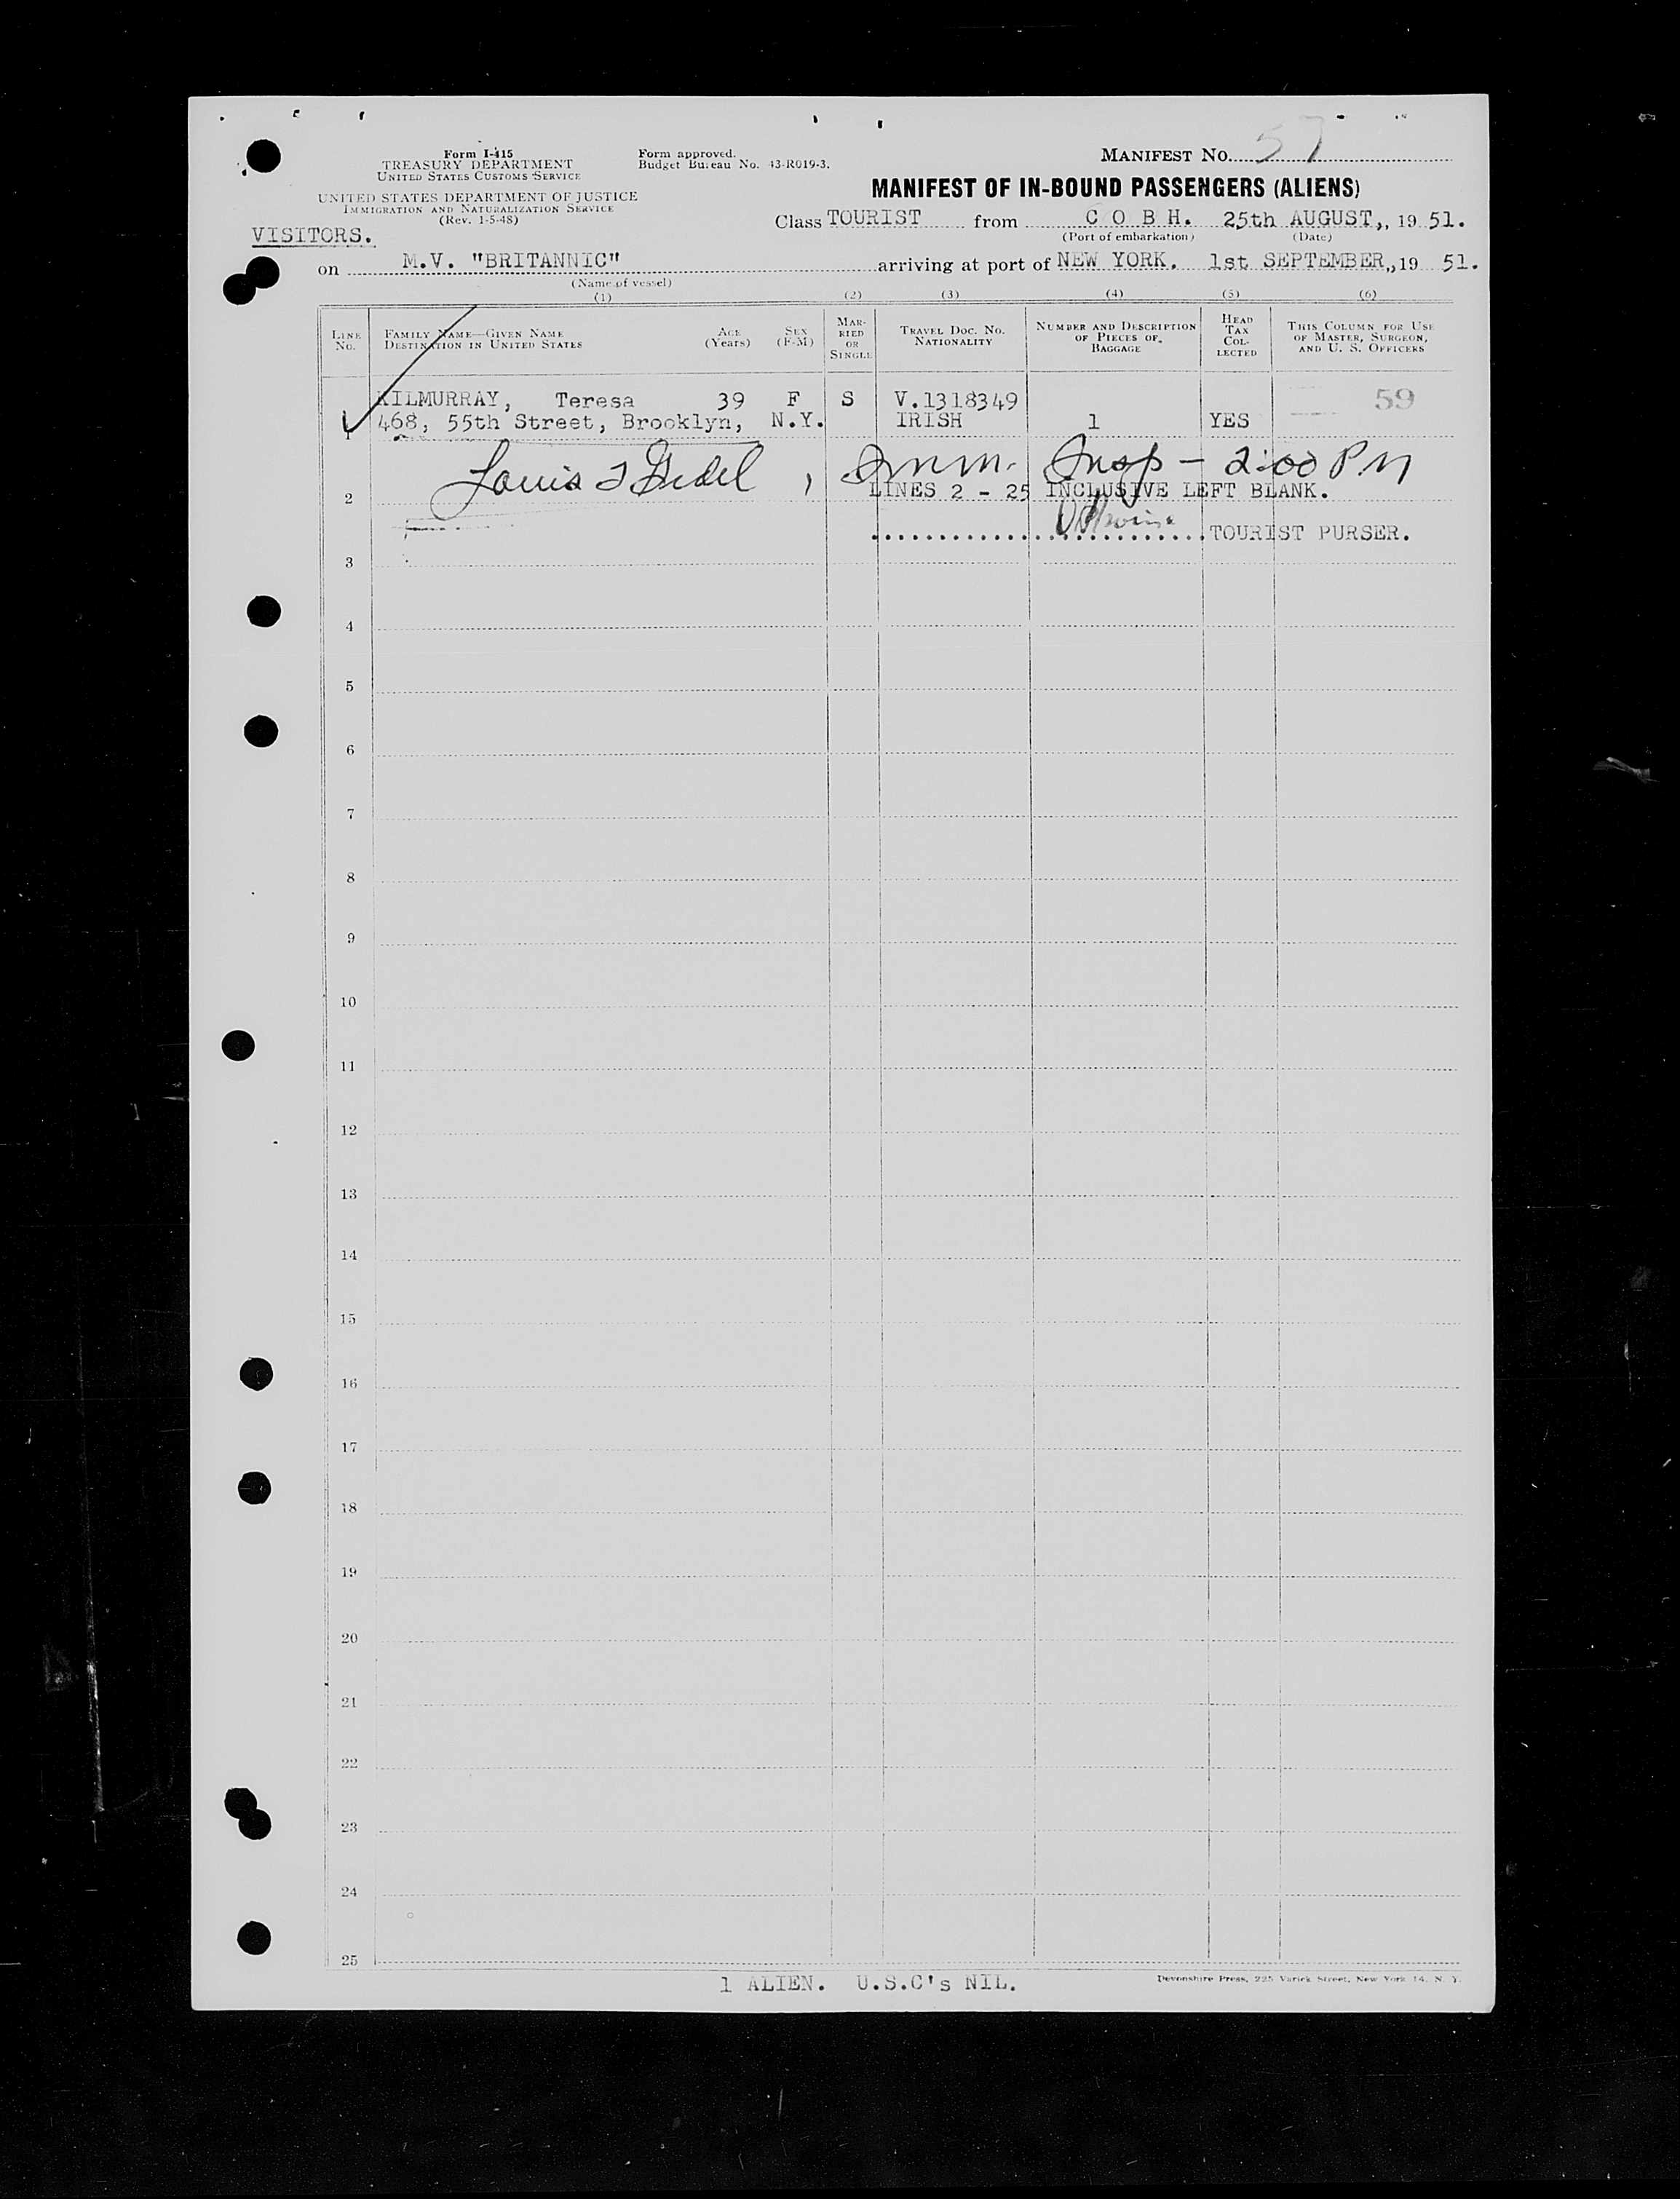 Form I-415
TREASURY DEPARTMENT
UNITED STATES CUSTOMS SERVICE
UNITED STATES DEPARTMENT OF JUSTICE
IMMIGRATION AND NATURALIZATION SERVICE
(Rev. 1-5-48)
Form approved.
Budget Bureau No. 43-R019-3.
MANIFEST NO. 57
MANIFEST OF IN-BOUND PASSENGERS (ALIENS)
VISITORS.
Class TOURIST from C O B H. 25th AUGUST,, 19 51.
(Port of embarkation) (Date)
on M.V. "BRITANNIC" arriving at port of NEW YORK. 1st SEPTEMBER,, 19 51.
(Name of vessel)
(1) (2) (3) (4) (5) (6)
LINE NO. FAMILY NAME—GIVEN NAME DESTINATION IN UNITED STATES AGE (Years) SEX (F-M) MARRIED OR SINGLE TRAVEL DOC. NO. NATIONALITY NUMBER AND DESCRIPTION OF PIECES OF BAGGAGE HEAD TAX COLLECTED THIS COLUMN FOR USE OF MASTER, SURGEON, AND U. S. OFFICERS
KILMURRAY, Teresa 39 F S V.1318349 59
1 468, 55th Street, Brooklyn, N.Y. IRISH 1 YES
Louis Imm. Insp - 2:00 PM
2 LINES 2 - 25 INCLUSIVE LEFT BLANK.
TOURIST PURSER.
3
4
5
6
7
8
9
10
11
12
13
14
15
16
17
18
19
20
21
22
23
24
25
1 ALIEN. U.S.C's NIL.
Devonshire Press, 225 Varick Street, New York 14, N. Y.